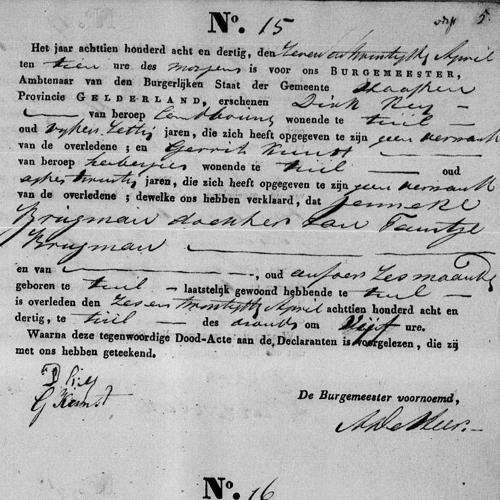 No. 15
5
Het jaar achttien honderd acht en dertig, den Zeven en twintigste April
ten tien ure des morgens is voor ons BURGEMEESTER,
Ambtenaar van den Burgerlijken Staat der Gemeente Haaften
Provincie GELDERLAND, erschenen Dirk
van beroep Landbouwer wonende te tuil
oud jaren, die zich heeft opgegeven te zijn geen verwant
van de overledene; en Gerrit Kunst
van beroep herbergier wonende te tuil oud
jaren, die zich heeft opgegeven te zijn geen verwant
van de overledene; dewelke ons hebben verklaard, dat Jenneke
Brugman dochter van
Brugman
en van , oud zes maanden
geboren te tuil laatstelijk gewoond hebbende te tuil
is overleden den Zes en twintigste April achttien honderd acht en
dertig, te tuil des avonds om Vijf ure.
Waarna deze tegenwoordige Dood-Acte aan de Declaranten is voorgelezen, die zij
met ons hebben geteekend.
D
G Kunst
De Burgemeester voornoemd,
No. 16